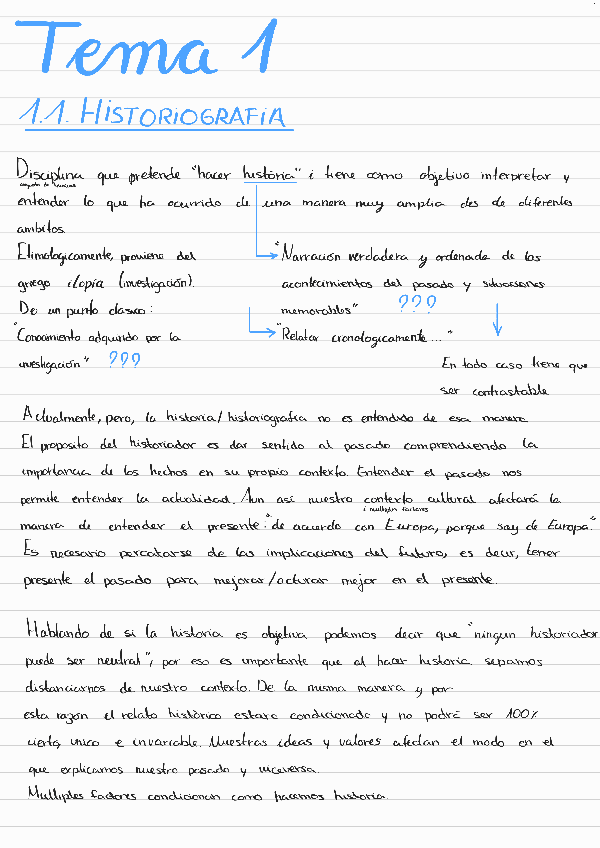 Tema 1
1.1. HISTORIOGRAFÍA
Disciplina que pretende "hacer història" i tiene como objetivo interpretar y
entender lo que ha ocurrido de una manera muy amplia des de diferentes
ambitos.
Etimologicamente, proviene del
griego ilopía (investigación).
De un punto clasico:
"Conocimiento adquirido por la
investigación" ???
"Narración verdadera y ordenada de los
acontecimientos del pasado y situaciones
memorables" ???
"Relatar cronologicamente..."
En todo caso tiene que
ser contrastable
Actualmente, pero, la historia/historiografia no es entendido de esa manera
El proposito del historiador es dar sentido al pasado comprendiendo la
importancia de los hechos en su propio contexto. Entender el pasado nos
permite entender la actualidad. Aun asi nuestro contexto cultural afectará la
i multiples factores
manera de entender el presente: "de acuerdo con Europa, porque soy de Europa."
Es necesario percatarse de las implicaciones del futuro, es decir, tener
presente el pasado para mejorar/actuar mejor en el presente.
Hablando de si la historia es objetiva podemos decir que "ningun historiador
puede ser neutral", por eso es importante que al hacer historia sepamos
distanciarnos de nuestro contexto. De la misma manera y por
esta razón el relato histórico estará condicionado y no podrá ser 100%
cierto, unico e invariable. Nuestras ideas y valores afectan el modo en el
que explicamos nuestro pasado y viceversa.
Multiples factores condicionan como hacemos historia.